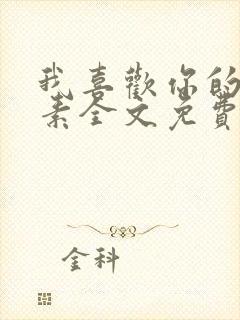 我喜歡你的
素全文免費
金科